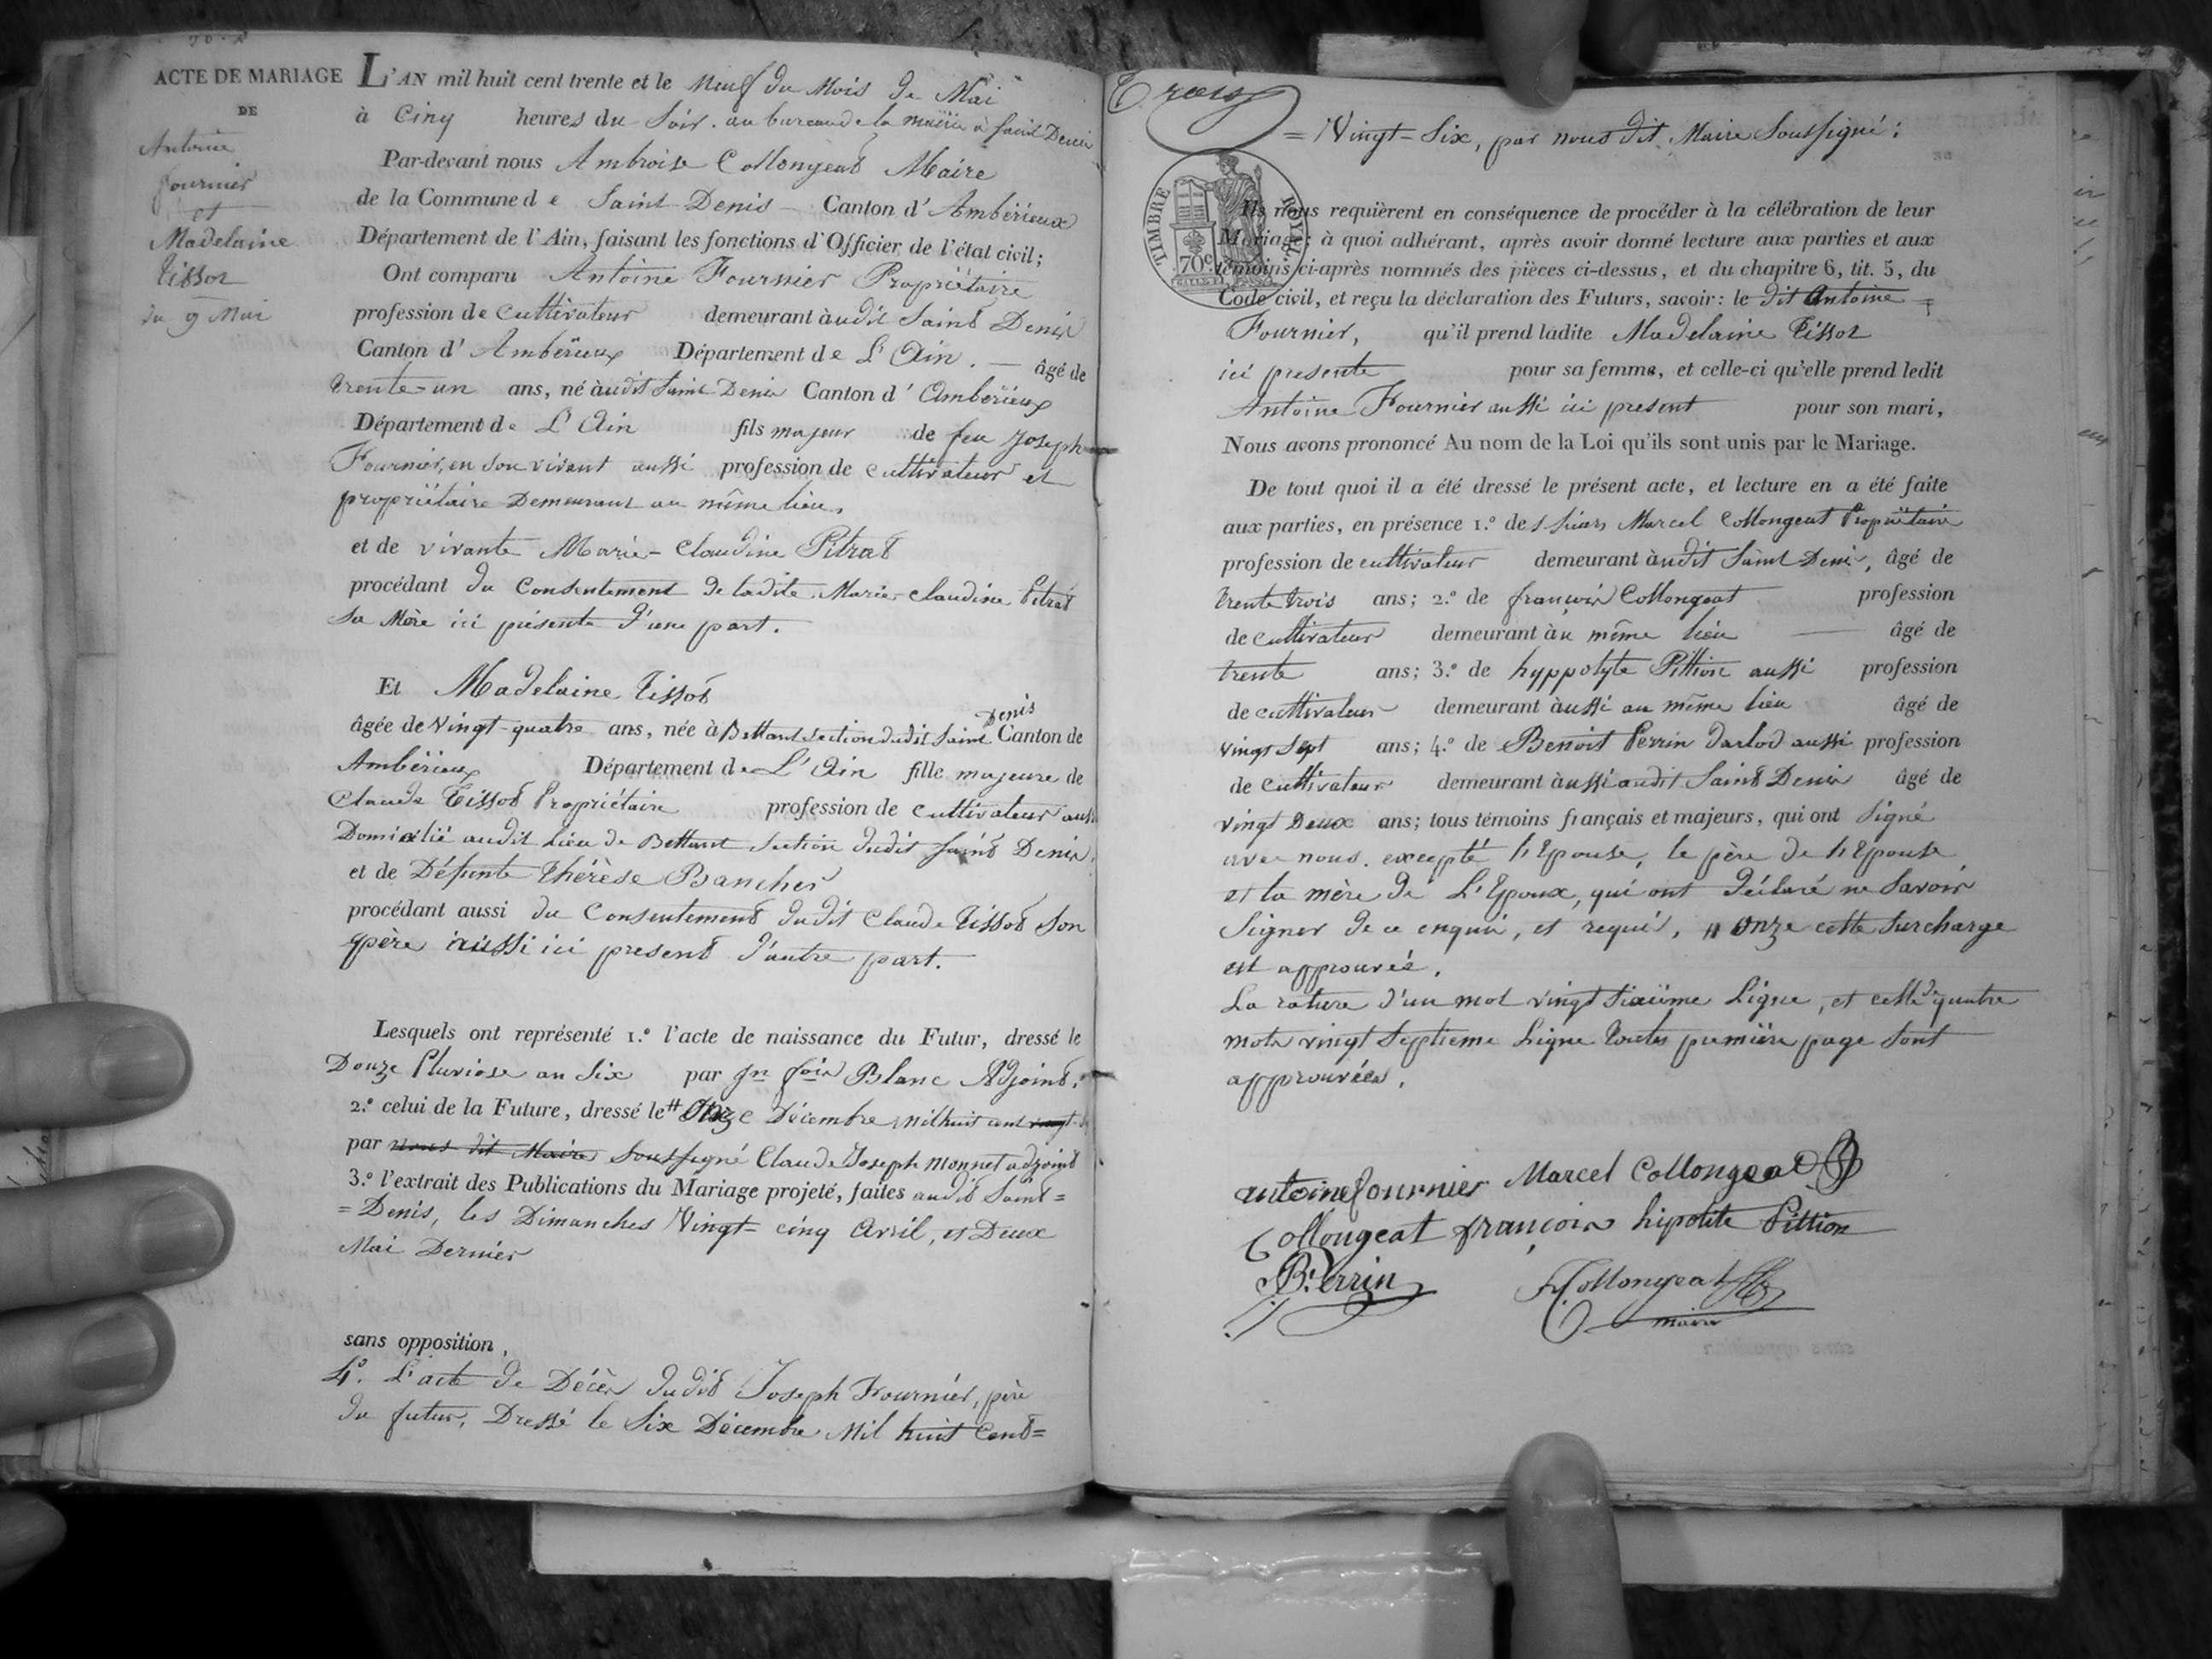 ACTE DE MARIAGE
DE
Antoine
fournier
et
Madelaine
Tissot
du 9 Mai
L'AN mil huit cent trente et le Neuf du Mois de Mai
à Cinq heures du Soir. au bureau de la mairie à saint Denis
Par-devant nous Ambroise Collongeat Maire
de la Commune de Saint Denis - Canton d'Ambérieux
Département de l'Ain, faisant les fonctions d'Officier de l'état civil;
Ont comparu Antoine Fournier Propriétaire
profession de Cultivateur demeurant àudit Saint Denis
Canton d'Ambérieux Département de L'Ain. — âgé de
trente-un ans, né àudit Saint Denis Canton d'Ambérieux
Département de L'Ain fils majeur de feu Joseph
Fournier, en son vivant aussi profession de cultivateur et
propriétaire Demeurant au même lieu,
et de vivante Marie-Claudine Pitrat
procédant du Consentement de ladite Marie-Claudine Pitrat
sa Mère ici présente d'une part.
Et Madelaine Tissot
âgée de Vingt-quatre ans, née à Bettant section dudit Saint Denis Canton de
Ambérieux Département de L'Ain fille majeure de
Claude Tissot Propriétaire profession de cultivateur aussi
Domicilié audit lieu de Bettant Section dudit Saint Denis,
et de Défunte Thérèse Bancher
procédant aussi du Consentement dudit Claude Tissot Son
père aussi ici present d'autre part.
Lesquels ont représenté 1.° l'acte de naissance du Futur, dressé le
Douze Pluviose an Six par jn fois Blanc Adjoint.
2.° celui de la Future, dressé le # Onze Décembre mil huit cent vingt
par nous dit Maire Soussigné Claude Joseph Monnet adjoint
3.° l'extrait des Publications du Mariage projeté, faites audit Saint=
=Denis, les Dimanches Vingt=cinq Avril, et Deux
Mai Dernier
sans opposition,
4.° L'acte de Décès dudit Joseph Fournier, père
du futur, Dressé le Six Décembre Mil huit Cent=
Trois
=Vingt-Six, par nous dit Maire Soussigné:
TIMBRE ROYAL
70c
Ils nous requièrent en conséquence de procéder à la célébration de leur
Mariage; à quoi adhérant, après avoir donné lecture aux parties et aux
témoins ci-après nommés des pièces ci-dessus, et du chapitre 6, tit. 5, du
Code civil, et reçu la déclaration des Futurs, savoir: le dit Antoine =
Fournier, qu'il prend ladite Madelaine Tissot
ici presente pour sa femme, et celle-ci qu'elle prend ledit
Antoine Fournier aussi ici present pour son mari,
Nous avons prononcé Au nom de la Loi qu'ils sont unis par le Mariage.
De tout quoi il a été dressé le présent acte, et lecture en a été faite
aux parties, en présence 1.° des Sieurs Marcel Collongeat Propriétaire
profession de cultivateur demeurant àudit Saint Denis, âgé de
trente trois ans; 2.° de françois Collongeat profession
de cultivateur demeurant àu même lieu — âgé de
trente ans; 3.° de hyppolyte Pittion aussi profession
de cultivateur demeurant àussi au même lieu âgé de
vingt Sept ans; 4.° de Benoit Perrin Darlod aussi profession
de cultivateur demeurant àussi audit Saint Denis âgé de
vingt Deux ans; tous témoins français et majeurs, qui ont Signé
avec nous. excepté l'Epouse, le père de l'Epouse,
et la mère de L'Epoux, qui ont déclaré ne Savoir
Signer de ce enquis, et requis, # Onze cette Surcharge
est approuvée.
La rature d'un mot vingt sixième Ligne, et celle de quatre
mots vingt Septième Ligne toutes première page Sont
approuvées.
antoine fournier Marcel Collongeat
Collongeat françois hipolite Pittion
B. Perrin Collongeat
maire